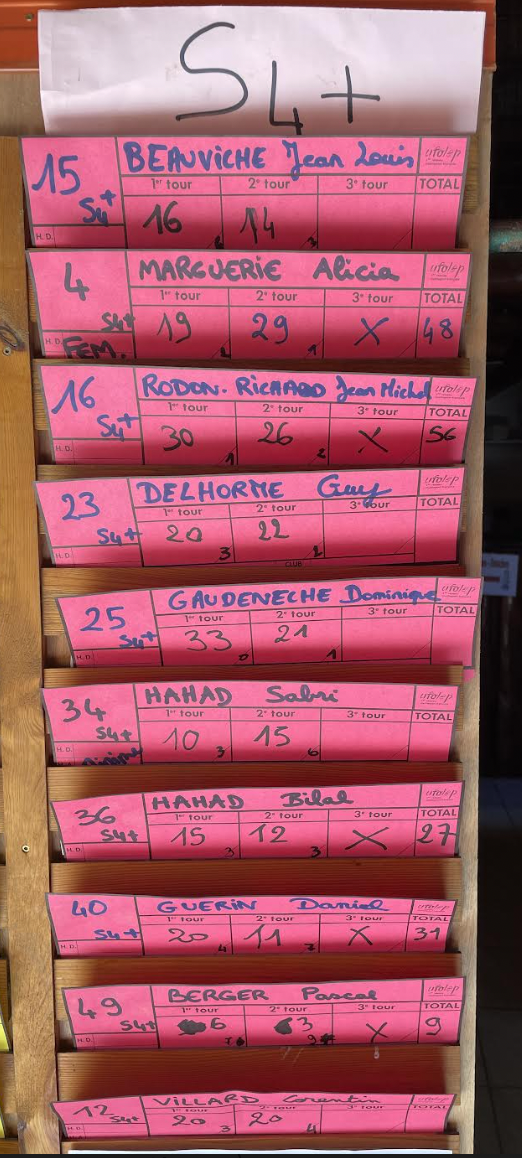 S4+
15 BEAUVICHE Jean Louis ufolep
1er tour 2e tour 3e tour TOTAL
S4+ 16 14
H.D.
4 MARGUERIE Alicia ufolep
1er tour 2e tour 3e tour TOTAL
S4+ 19 29 X 48
FEM.
16 RODON. RICHARD Jean Michel ufolep
1er tour 2e tour 3e tour TOTAL
S4+ 30 26 X 56
H.D. 1 2
23 DELHORME Guy ufolep
1er tour 2e tour 3e tour TOTAL
S4+ 20 22
H.D. 3
CLUB
25 GAUDENECHE Dominique ufolep
1er tour 2e tour 3e tour TOTAL
S4+ 33 21
H.D. 0 1
34 HAHAD Sabri ufolep
1er tour 2e tour 3e tour TOTAL
S4+ 10 15
3 6
36 HAHAD Bilal ufolep
1er tour 2e tour 3e tour TOTAL
S4+ 15 12 X 27
H.D. 3 3
40 GUERIN Daniel ufolep
1er tour 2e tour 3e tour TOTAL
S4+ 20 11 X 31
H.D. 4 7
49 BERGER Pascal ufolep
1er tour 2e tour 3e tour TOTAL
S4+ 6 3 X 9
H.D.
12 VILLARD Corentin ufolep
1er tour 2e tour 3e tour TOTAL
S4+ 20 20
3 4